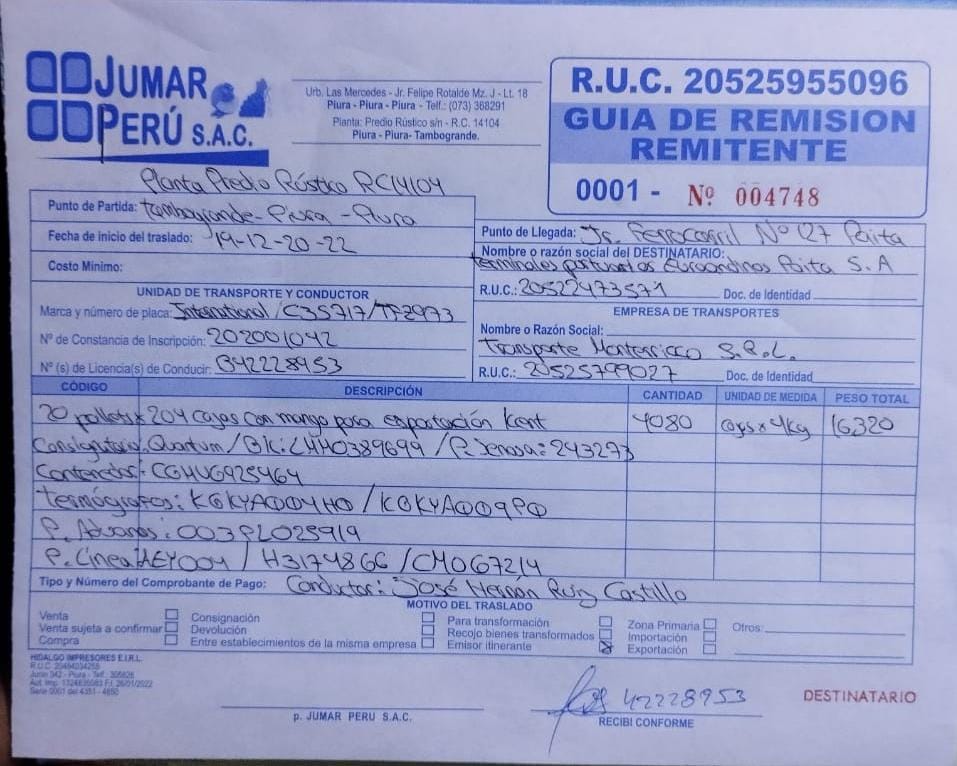 JUMAR
PERÚ S.A.C.
Urb. Las Mercedes - Jr. Felipe Rotalde Mz. J - Lt. 18
Piura - Piura - Piura - Telf.: (073) 368291
Planta: Predio Rústico s/n - R.C. 14104
Piura - Piura- Tambogrande.
R.U.C. 20525955096
GUIA DE REMISION
REMITENTE
0001 - Nº 004748
Planta Predio Rústico RC14104
Punto de Partida: Tambogrande - Piura - Piura
Fecha de inicio del traslado: 19-12-20-22
Costo Mínimo:
Punto de Llegada: Jr. Ferrocarril Nº 127 Paita
Nombre o razón social del DESTINATARIO:
terminales portuarios Euroandinos Paita S.A
R.U.C.: 20522473571 Doc. de Identidad
UNIDAD DE TRANSPORTE Y CONDUCTOR
Marca y número de placa: International / C3S717 / TF2973
Nº de Constancia de Inscripción: 202001042
Nº (s) de Licencia(s) de Conducir: B42228953
EMPRESA DE TRANSPORTES
Nombre o Razón Social:
Transporte Monterricco S.R.L.
R.U.C.: 20525799027 Doc. de Identidad
CÓDIGO DESCRIPCIÓN CANTIDAD UNIDAD DE MEDIDA PESO TOTAL
20 pallets x 204 cajas con mango para exportación Kent 4080 cajas x 4kg 16320
Consignatario: Quantum / BK: LMM0389699 / P. Senasa: 243273
Contenedor: CGMU6925464
termógrafos: KGKYA004H0 / KGKYA009P0
P. Aduanas: 003PL025919
P. Línea: AEY004 / H3174866 / CM067214
Tipo y Número del Comprobante de Pago: Conductor: José Hernán Ruiz Castillo
MOTIVO DEL TRASLADO
Venta
Venta sujeta a confirmar
Compra
Consignación
Devolución
Entre establecimientos de la misma empresa
Para transformación
Recojo bienes transformados
Emisor itinerante
Zona Primaria
Importación
Exportación
Otros:
HIDALGO IMPRESORES E.I.R.L.
R.U.C. 20484034255
Junin 342 - Piura - Telf. 305826
Serie 0001 del 4351 - 4850
p. JUMAR PERU S.A.C.
42228953
RECIBI CONFORME
DESTINATARIO